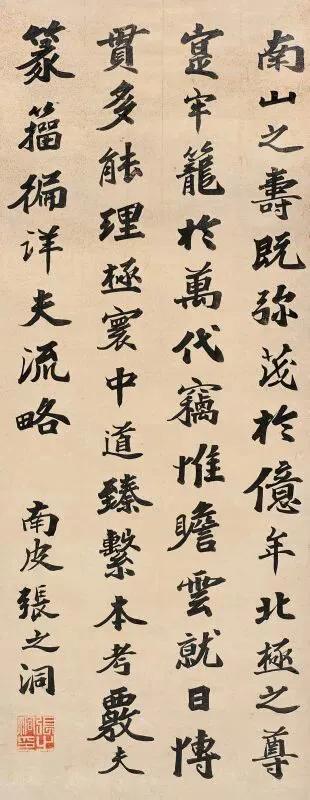 南山之壽既弥茂於億年北極之尊
寔牢籠於萬代竊惟瞻雲就日愽
貫多能理極寰中道臻繫本考覈夫
篆籀徧详夫流略
南皮張之洞
張之洞印